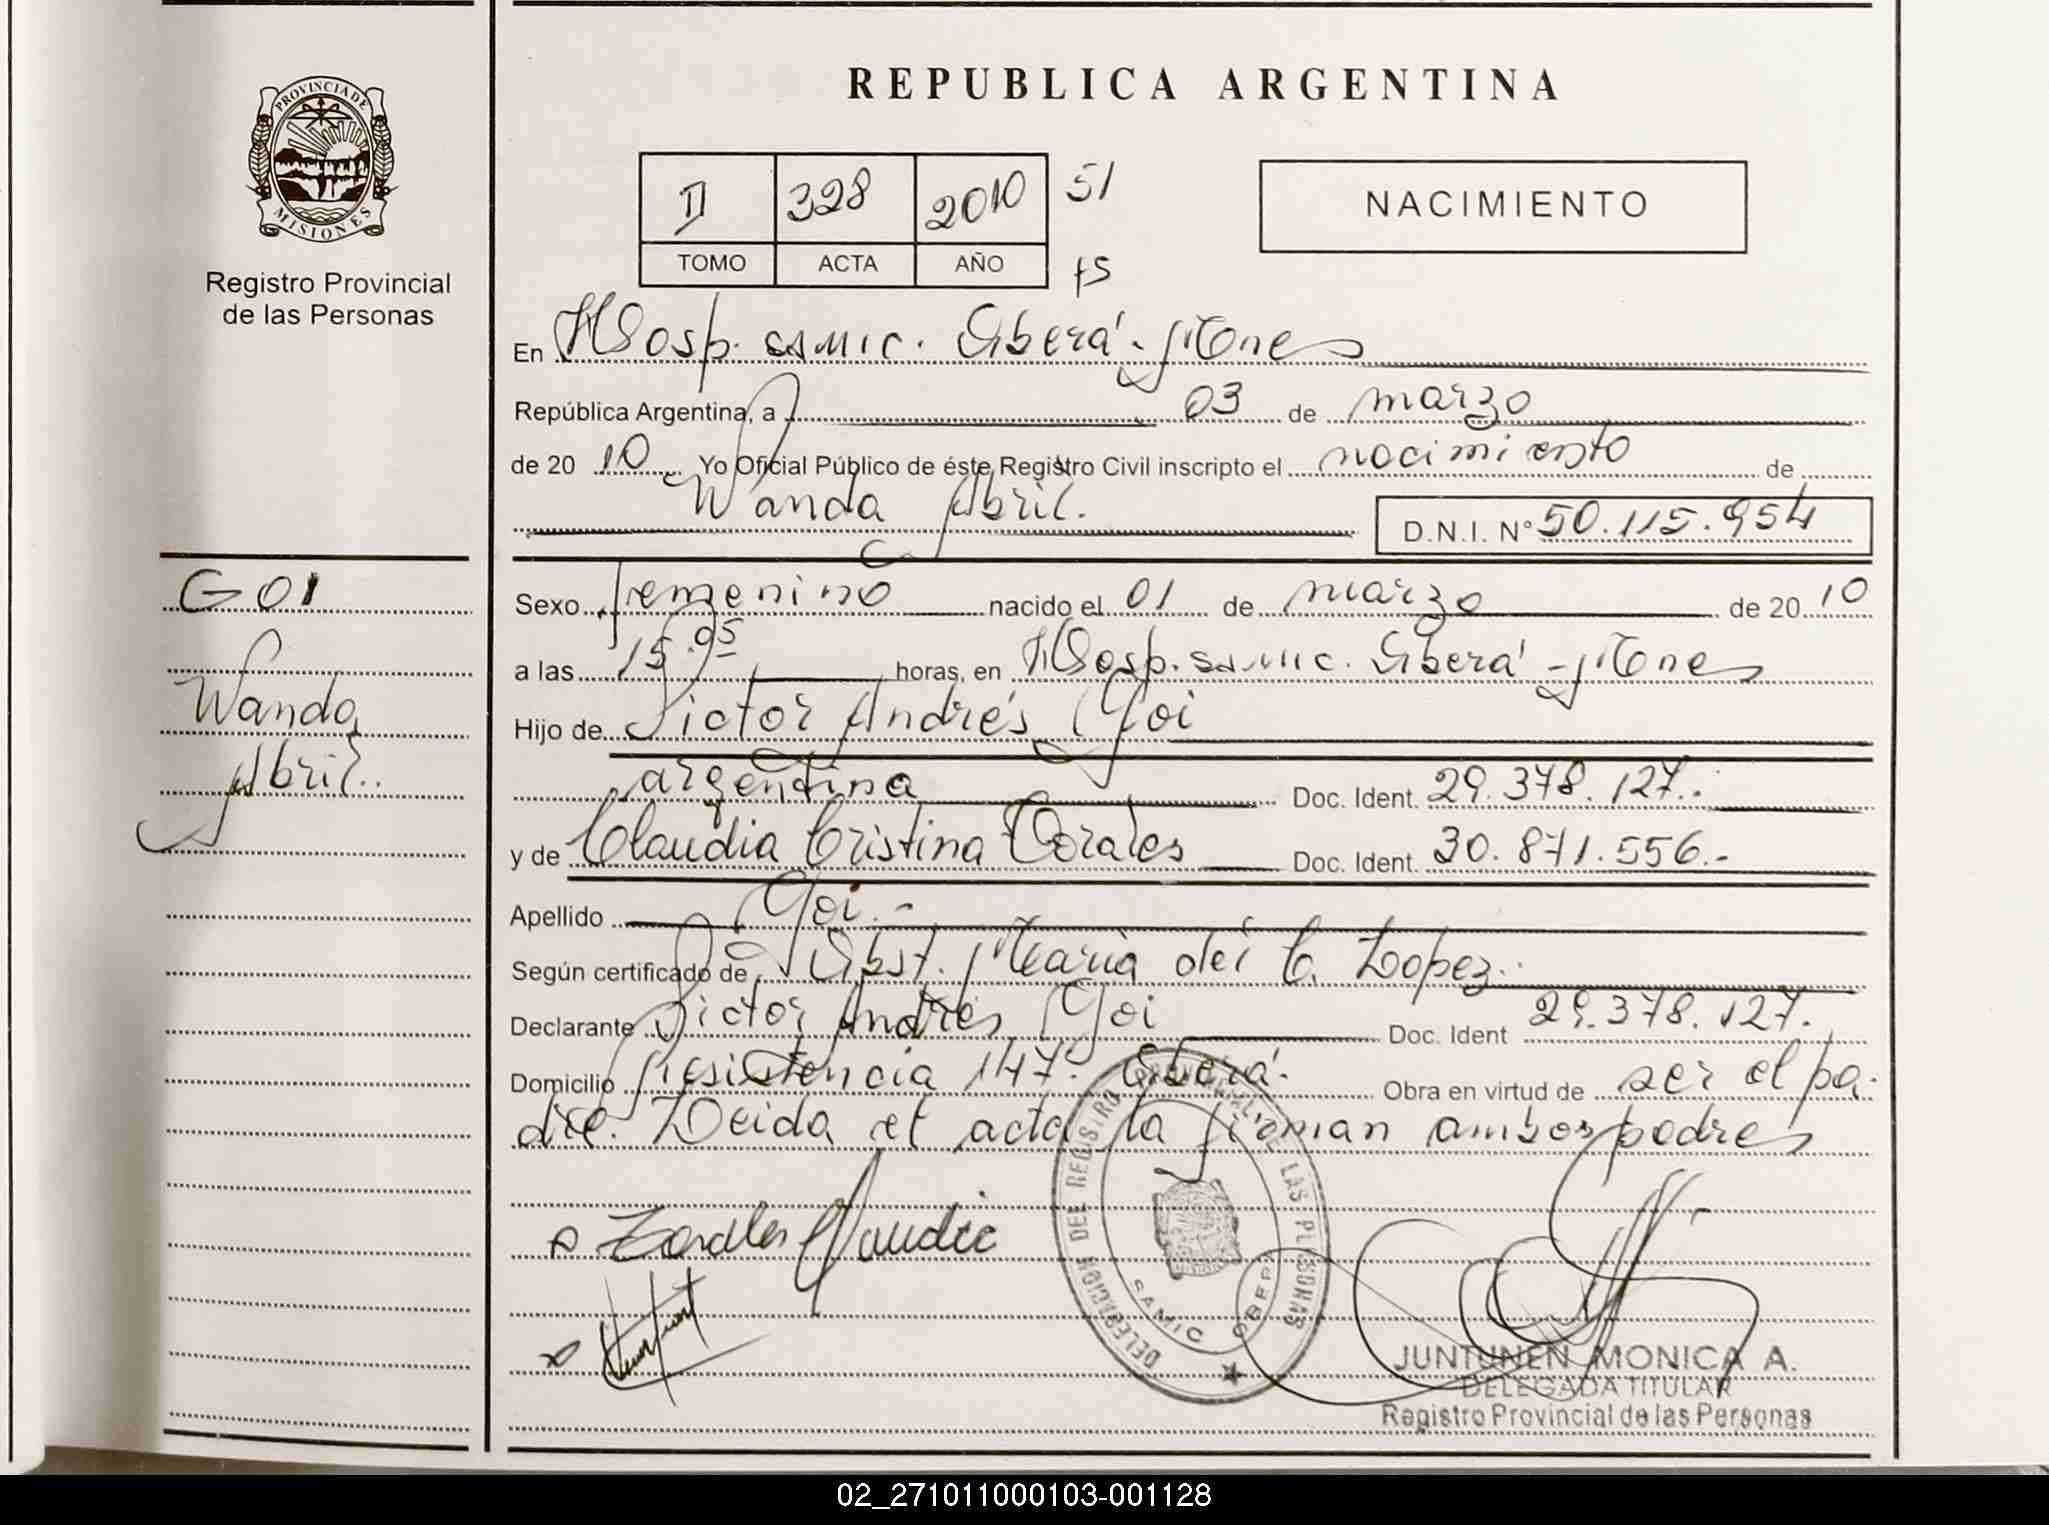 PROVINCIA DE
MISIONES
Registro Provincial
de las Personas
GOI
Wanda
Abril.
REPUBLICA ARGENTINA
II 328 2010 51
TOMO ACTA AÑO fs
NACIMIENTO
En Hosp. samic. Oberá - Mones
República Argentina, a 03 de marzo
de 2010 Yo Oficial Público de éste Registro Civil inscripto el nacimiento de
Wanda Abril. D.N.I. N° 50.115.954
Sexo femenino nacido el 01 de marzo de 2010
a las 15.05 horas, en Hosp. samic. Oberá - Mones
Hijo de Victor Andrés Goi
argentina Doc. Ident. 29.378.127.-
y de Claudia Cristina Dorales Doc. Ident. 30.871.556.-
Apellido Goi.-
Según certificado de Obst. Maria del C. Lopez.
Declarante Victor Andrés Goi Doc. Ident 29.378.127.
Domicilio Resistencia 147. Oberá. Obra en virtud de ser el pa-
dre. Leida el acta la firman ambos padres
Claudia
DELEGACION DEL REGISTRO PROVINCIAL DE LAS PERSONAS
SAMIC OBERA
JUNTUNEN MONICA A.
DELEGADA TITULAR
Registro Provincial de las Personas
02_271011000103-001128